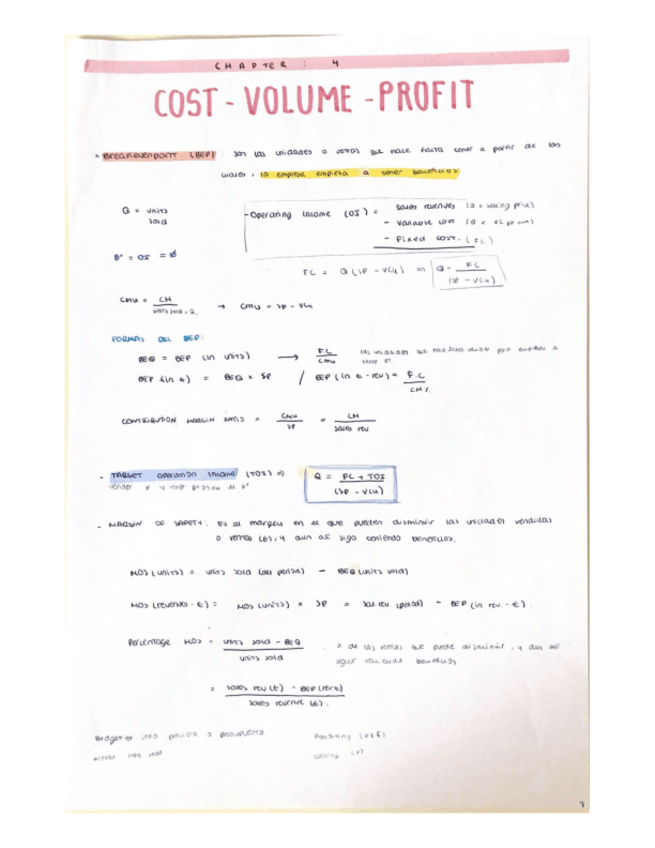 CHAPTER : 4
COST - VOLUME - PROFIT
- BREAKEVENPOINT (BEP) : son las unidades o ventas que hace falta tener a partir de las
cuales, la empresa empieza a tener beneficios
Q = units
sold
- Operating Income (OI) = Sales revenues (Q × selling price)
- Variable cost (Q ×
- Fixed cost. (FC)
Bº = OI = Ø
FC = Q (SP - VCu) ⇒ Q = FC / (SP - VCu)
CMu = CM / units sold, Q. → CMu = SP - VCu
FORMAS DEL BEP:
BEQ = BEP (in units) → FC / CMu las unidades que
BEP (in €) = BEQ × SP / BEP (in € - rev) = F.C / CM%
CONTRIBUTION MARGIN RATIO = CMu / SP = CM / sales rev
- TARGET operation income (TOI) ⇒ Q = FC + TOI / (SP - VCu)
- MARGIN OF SAFETY: es el margen en el que pueden disminuir las unidades vendidas
o ventas (€), y aún así sigo teniendo beneficios.
MOS (units) = units sold (del period) - BEQ (units sold)
MOS (revenues - €) = MOS (units) × SP = sal. rev (period) - BEP (in rev - €).
Percentage MOS = units sold - BEQ / units sold
% de las ventas que puede disminuir, y aun así
seguir teniendo beneficios
= sales rev (€) - BEP (rev €) / sales revenue (€).
7